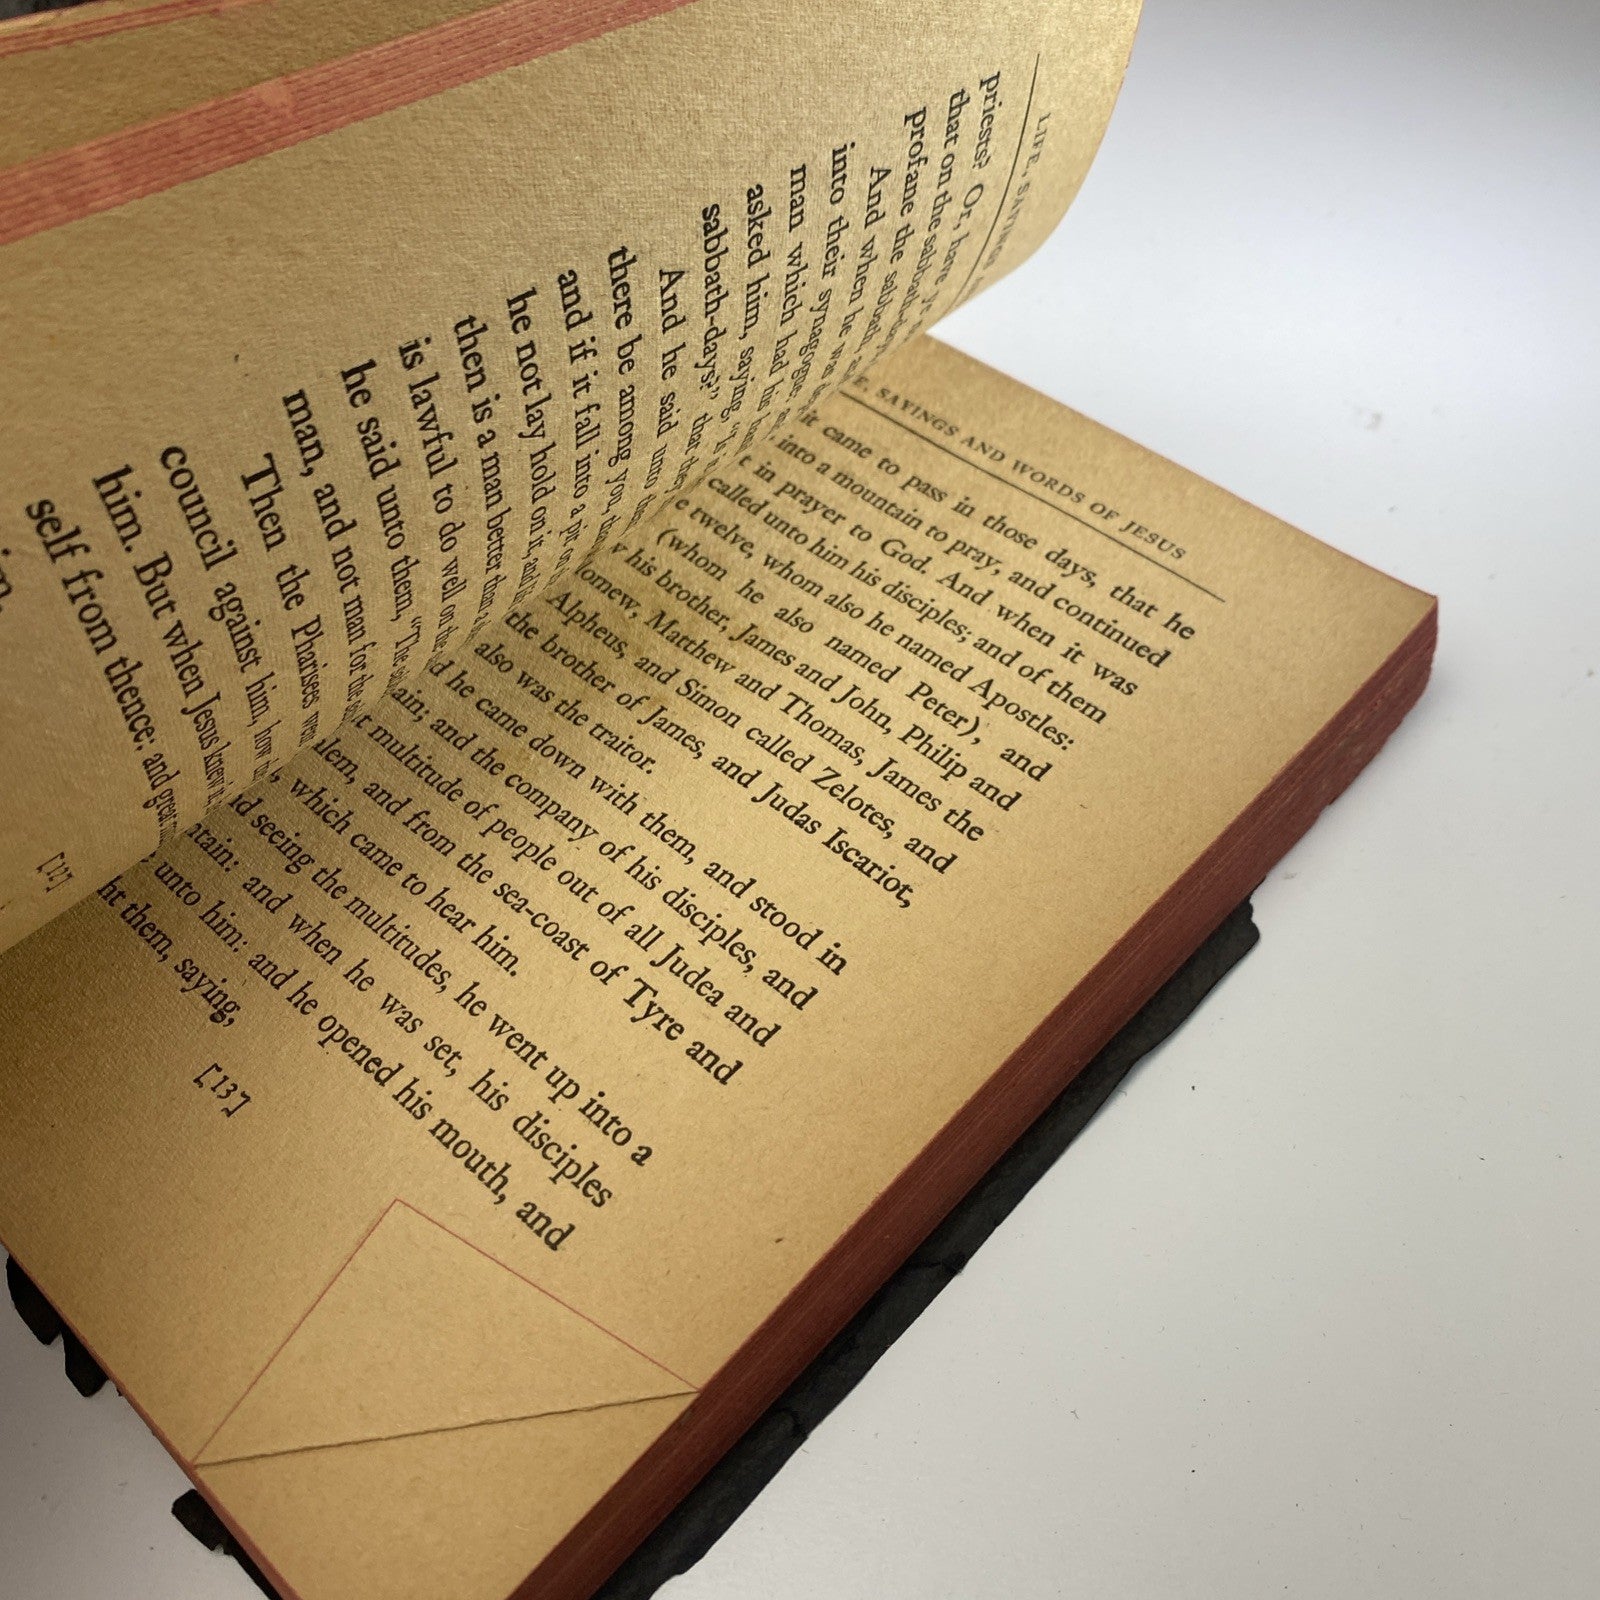 LIFE, SAYINGS
priests? Or, have ye
that on the sabbath-day
profane the sabbath
And when he was
into their synagogue
man which had his
asked him, saying, "Is
sabbath-days?" that they
And he said unto
there be among you,
and if it fall into a pit on
he not lay hold on it, and
then is a man better than
is lawful to do well on the
he said unto them, "The
man, and not man for the
Then the Pharisees went
council against him, how
him. But when Jesus knew it,
self from thence: and great
[12]
SAYINGS AND WORDS OF JESUS
it came to pass in those days, that he
into a mountain to pray, and continued
in prayer to God. And when it was
called unto him his disciples; and of them
twelve, whom also he named Apostles:
(whom he also named Peter), and
his brother, James and John, Philip and
Matthew and Thomas, James the
Alpheus, and Simon called Zelotes, and
the brother of James, and Judas Iscariot,
also was the traitor.
he came down with them, and stood in
and the company of his disciples, and
multitude of people out of all Judea and
and from the sea-coast of Tyre and
which came to hear him.
seeing the multitudes, he went up into a
and when he was set, his disciples
unto him: and he opened his mouth, and
them, saying,
[13]